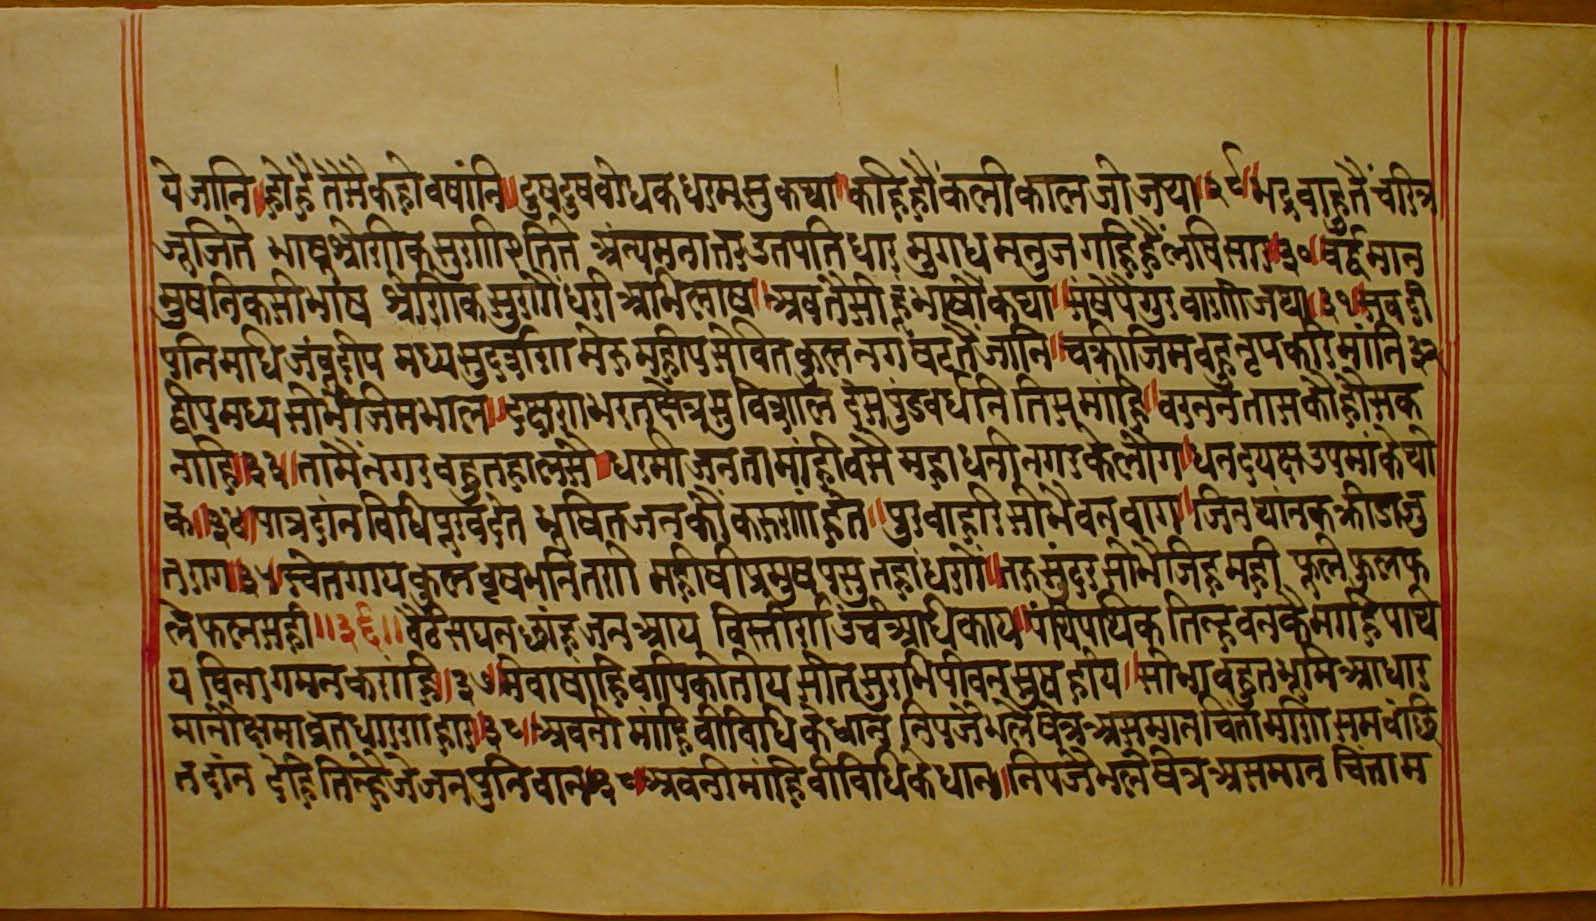 ये जानि॥ होहै तैसै कहो बषांनि॥ दुषदुष बोधक धरम सु कथा॥ कहिहौं कलीकाल जी जथा॥२९॥ भद्रबाहु तैं चरित्र
जु जिते भाषे श्रेणीक सुणी तिते अंत्यम उतपति धार मुगध मनुज गहिहैं लषि सार॥३०॥ वर्द्धमान
मुष निकसी भाष श्रेणिक सुणै धरी अभिलाष॥ अब तैसी ह भाषौ कथा॥ संषेपै गुर वाणी जथा॥३१॥ सब दी
पनि मधि जंबूदीप मध्य सुदर्शण मेरु महीप सेवित कुल नग षट तैं जानि॥ चक्री जिम बहु नृप करि मांनि ३२
द्वीप मध्य सोभै जिम भाल॥ दक्षण भरतक्षेत्र सु विशाल देस पुंडवर्धनि तिस मांहि॥ बरनन तास कौ है सक
नाहि॥३३॥ तामैं नगर बहुत हा लसै॥ धरमी जन ता मांही बसै महा धनी नगर के लोग॥ धनद यक्ष उपमां के यो
क॥३४॥ पात्र दांन विधि पूरव देत भूषित जन कौं करुणा हेत॥ पुर बाहरि सोभै वन बाग॥ जिन थांनक क्रीडा जु
तराग॥३५॥ स्वेत गाय कुल वृषभनि तणी महीषी प्रमुष पसु तहां घणी॥ तरु सुंदर सोभै जिह मही फूले फुल फ
ले फल सही॥३६॥ बैठे सघन छांह जन आय विस्तीर्ण उंच अधिकाय॥ पंथि पथिक तिन्ह वन कै मगहि पाथे
य विना गमन करांहि॥३७॥ मेवा षांहि वापिका तोय सीत सुरभि पीवन सुष होय॥ सोभा बहुत भूमि आधार
मानौ क्षमा व्रत धारण हार॥३८॥ अवनी मांहि वीविधि के धान निपजै भले षेत्र असमान चिंतामणि सम वांछि
त दांन देहि तिन्है जे जन पुनिवान॥३९॥ अवनी मांहि वीविधि के धान॥ निपजै भले षेत्र असमान चिंताम